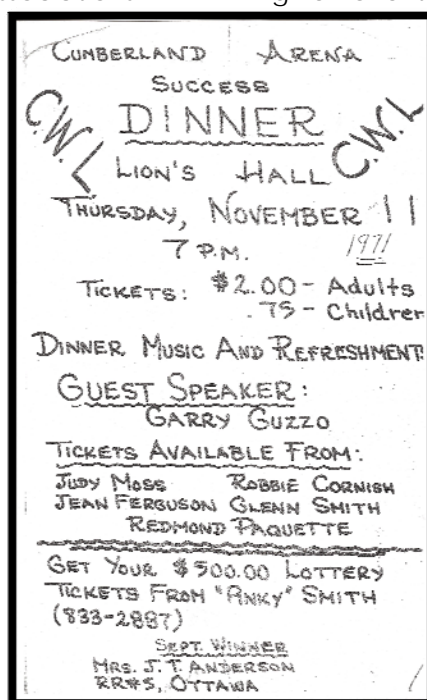 CUMBERLAND ARENA
SUCCESS
C.W.L DINNER C.W.L
LION'S HALL
THURSDAY, NOVEMBER 11
7 P.M. 1971
TICKETS: $2.00 - Adults
.75 - Children
DINNER MUSIC AND REFRESHMENT
GUEST SPEAKER:
GARRY GUZZO
TICKETS AVAILABLE FROM:
JUDY MOSS ROBBIE CORNISH
JEAN FERGUSON GLENN SMITH
REDMOND PAQUETTE
GET YOUR $500.00 LOTTERY
TICKETS FROM "PINKY" SMITH
(833-2887)
SEPT. WINNER
MRS. J.T. ANDERSON
RR#5, OTTAWA